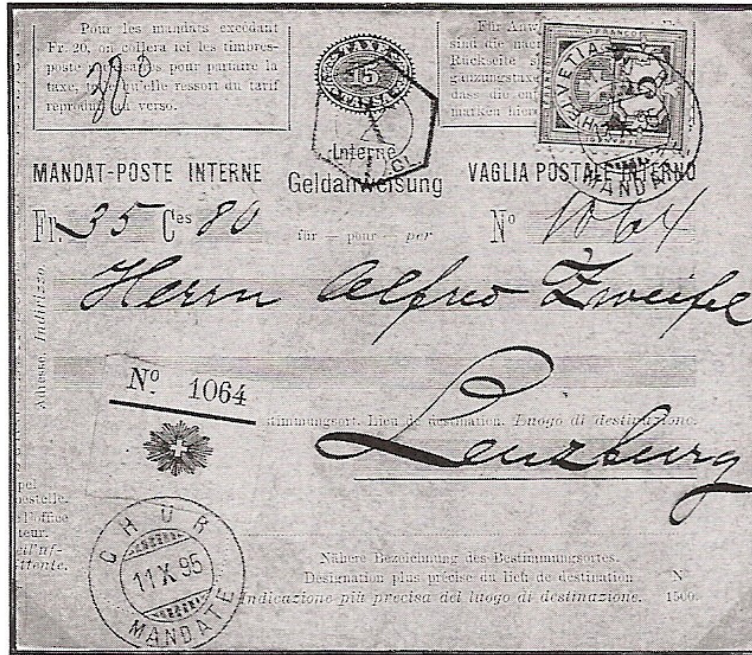 Pour les mandats excédant
Fr. 20, on collera ici les timbres-
poste pour parfaire la
taxe, qu'elle ressort du tarif
au verso.
TAXE
15
TAXA
Für
sind die
Rückseite
gänzungstaxe
dass die
marken hier
FRANCO
HELVETIA
MANDAT
Interne
MANDAT-POSTE INTERNE
Geldanweisung
VAGLIA POSTALE INTERNO
Fr. 35 Ces 80
für — pour — per
No 1064
Herrn Alfred Zweifel
Adresse. Indirizzo.
No. 1064
stimmungsort. Lieu de destination. Luogo di destinazione.
Lenzburg
pel
estelle.
l'office
teur.
ell'uf-
ittente.
CHUR
11 X 95
MANDATE
Nähere Bezeichnung des Bestimmungsortes.
Désignation plus précise du lieu de destination
Indicazione più precisa del luogo di destinazione.
N
1500.